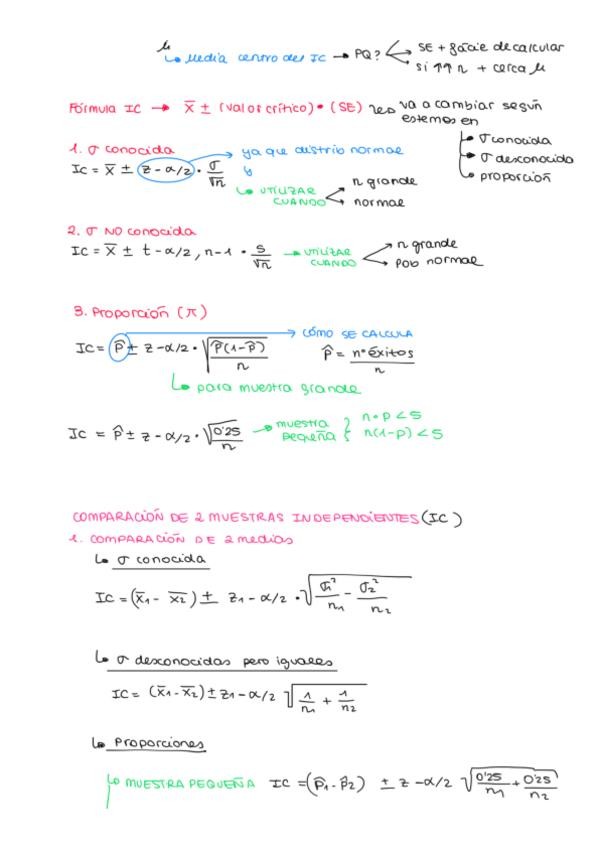 μ
↳ Media centro del IC → PQ? SE + fácil de calcular
si ↑↑ n + cerca μ
Fórmula IC → x̄ ± (valor crítico) • (SE) va a cambiar según
estemos en
σ conocida
σ desconocida
proporción
1. σ conocida → ya que distrib normal
IC = x̄ ± z - α/2 · σ/√n
↳ UTILIZAR CUANDO
n grande
normal
2. σ NO conocida
IC = x̄ ± t - α/2, n-1 · s/√n → UTILIZAR CUANDO
n grande
pob normal
3. Proporción (π)
→ CÓMO SE CALCULA
IC = p̂ ± z - α/2 · √(p̂(1-p̂)/n) p̂ = nº éxitos/n
↳ para muestra grande
IC = p̂ ± z - α/2 · √(0'25/n) → muestra pequeña { n·p < 5
n(1-p) < 5
COMPARACIÓN DE 2 MUESTRAS INDEPENDIENTES (IC)
1. COMPARACIÓN DE 2 medias
↳ σ conocida
IC = (x̄1 - x̄2) ± z1 - α/2 · √(σ1²/n1 - σ2²/n2)
↳ σ desconocidas pero iguales
IC = (x̄1 - x̄2) ± z1 - α/2 √(1/n1 + 1/n2)
↳ Proporciones
↳ MUESTRA PEQUEÑA IC = (p̂1 - p̂2) ± z - α/2 √(0'25/n1 + 0'25/n2)